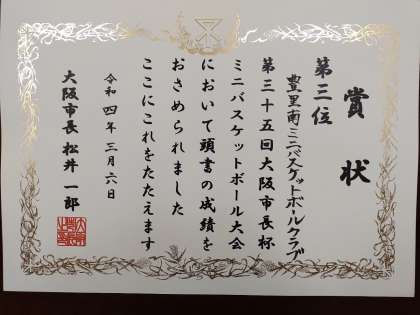 賞状
第三位
豊里南ミニバスケットボールクラブ
第三十五回大阪市長杯
ミニバスケットボール大会
において頭書の成績を
おさめられました
ここにこれをたたえます
令和四年三月六日
大阪市長 松井一郎